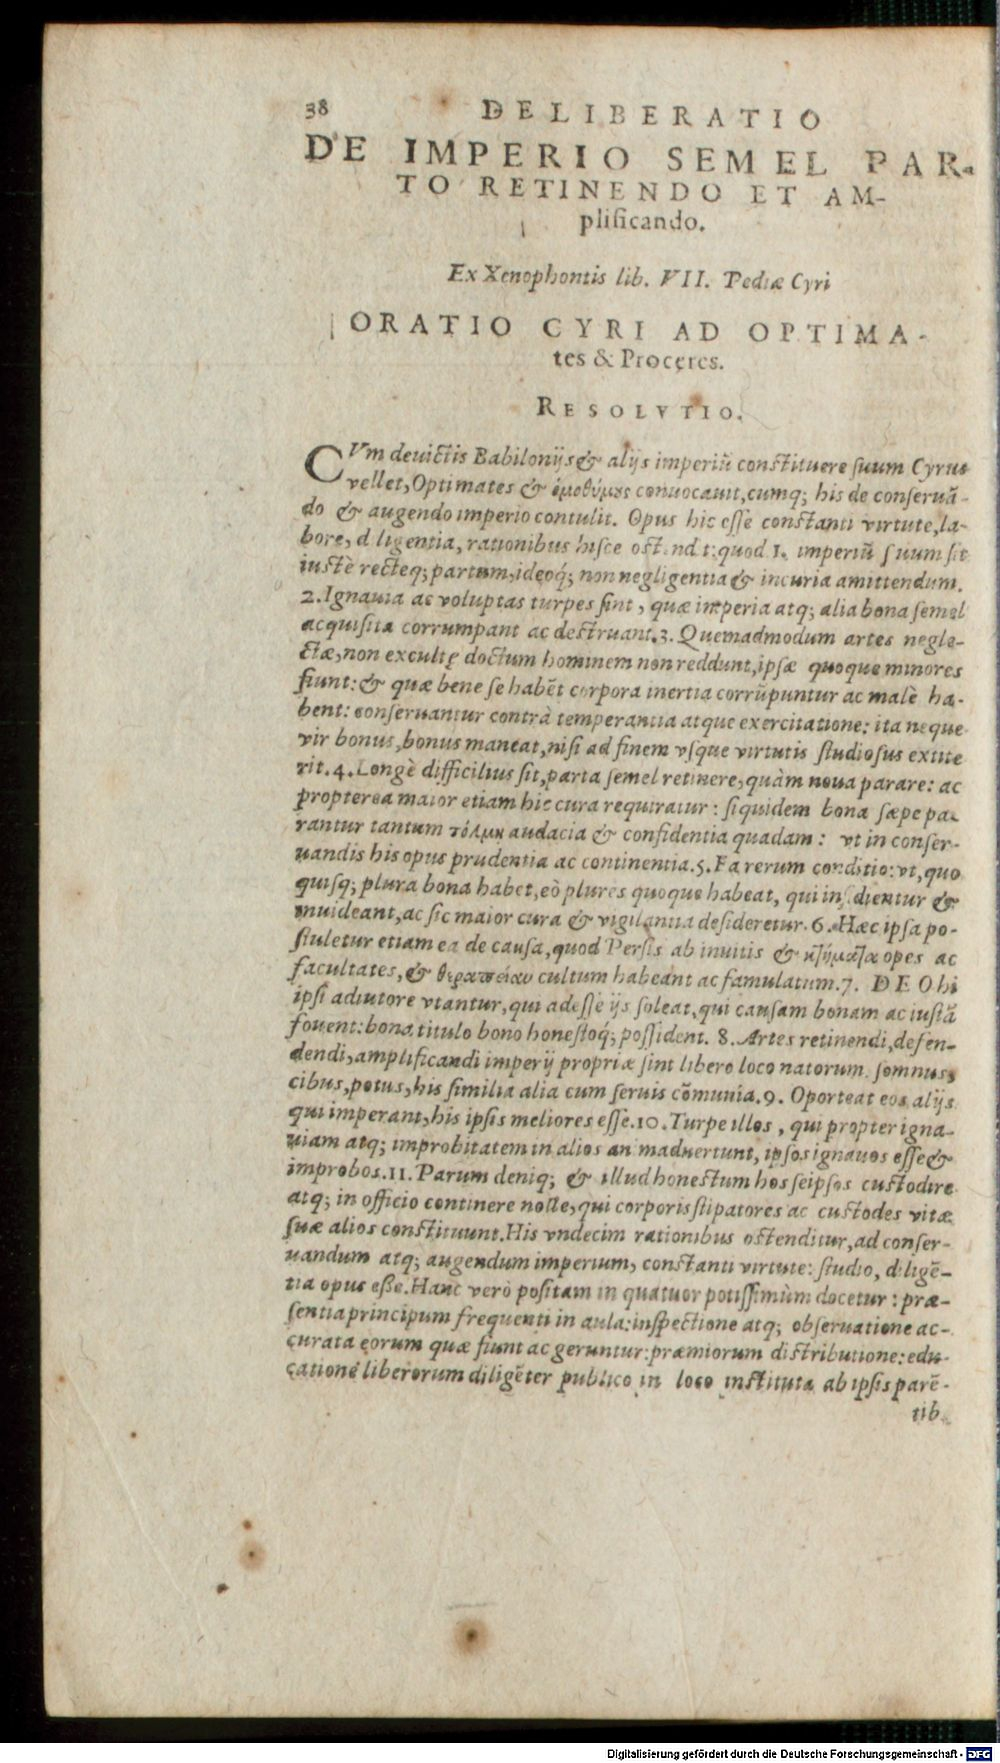 38 DELIBERATIO
DE IMPERIO SEMEL PAR-
TO RETINENDO ET AM-
plificando.
Ex Xenophontis lib. VII. Pediæ Cyri
ORATIO CYRI AD OPTIMA-
tes & Proceres.
RESOLVTIO.
CVm deuictis Babilonijs & alijs imperiũ constituere suum Cyrus
vellet, Optimates & ὁμοθύμυς conuocauit, cumq; his de conseruã-
do & augendo imperio contulit. Opus hic esse constanti virtute, la-
bore, diligentia, rationibus hisce ostendit: quod 1. imperiũ suum sit
iustè recteq; partum, ideoq́; non negligentia & incuria amittendum.
2. Ignauia ac voluptas turpes sint, quæ imperia atq; alia bona semel
acquisita corrumpant ac destruant. 3. Quemadmodum artes negle-
ctæ, non excultę doctum hominem non reddunt, ipsæ quoque minores
fiunt: & quæ bene se habẽt corpora inertia corrũpuntur ac malè ha-
bent: conseruantur contrà temperantia atque exercitatione: ita neque
vir bonus, bonus maneat, nisi ad finem vsque virtutis studiosus extite
rit. 4. Longè difficilius sit, parta semel retinere, quàm noua parare: ac
propterea maior etiam hic cura requiratur: siquidem bona sæpe pa-
rantur tantum τόλμῃ audacia & confidentia quadam: vt in conser-
uandis his opus prudentia ac continentia. 5. Ea rerum conditio: vt, quo
quisq; plura bona habet, eò plures quoque habeat, qui insidientur &
inuideant, ac sic maior cura & vigilantia desideretur. 6. Hæc ipsa po-
stuletur etiam ea de causa, quod Persis ab inuitis & κτήματα opes ac
facultates, & θεραπείαν cultum habeant ac famulatum. 7. DEO hi
ipsi adiutore vtantur, qui adesse ijs soleat, qui causam bonam ac iustã
fouent: bona titulo bono honestoq; possident. 8. Artes retinendi, defen-
dendi, amplificandi imperij propriæ sint libero loco natorum. somnus,
cibus, potus, his similia alia cum seruis cõmunia. 9. Oporteat eos alijs
qui imperant, his ipsis meliores esse. 10. Turpe illos, qui propter igna-
uiam atq; improbitatem in alios animaduertunt, ipsos ignauos esse &
improbos. 11. Parum deniq; & illud honestum hos seipsos custodire
atq; in officio continere nolle, qui corporis stipatores ac custodes vitæ
suæ alios constituunt. His vndecim rationibus ostenditur, ad conser-
uandum atq; augendum imperium, constanti virtute: studio, diligẽ-
tia opus esse. Hanc verò positam in quatuor potissimùm docetur: præ-
sentia principum frequenti in aula: inspectione atq; obseruatione ac-
curata eorum quæ fiunt ac geruntur: præmiorum distributione: edu-
catione liberorum diligẽter publico in loco instituta ab ipsis parẽ-
tib.
Digitalisierung gefördert durch die Deutsche Forschungsgemeinschaft - DFG